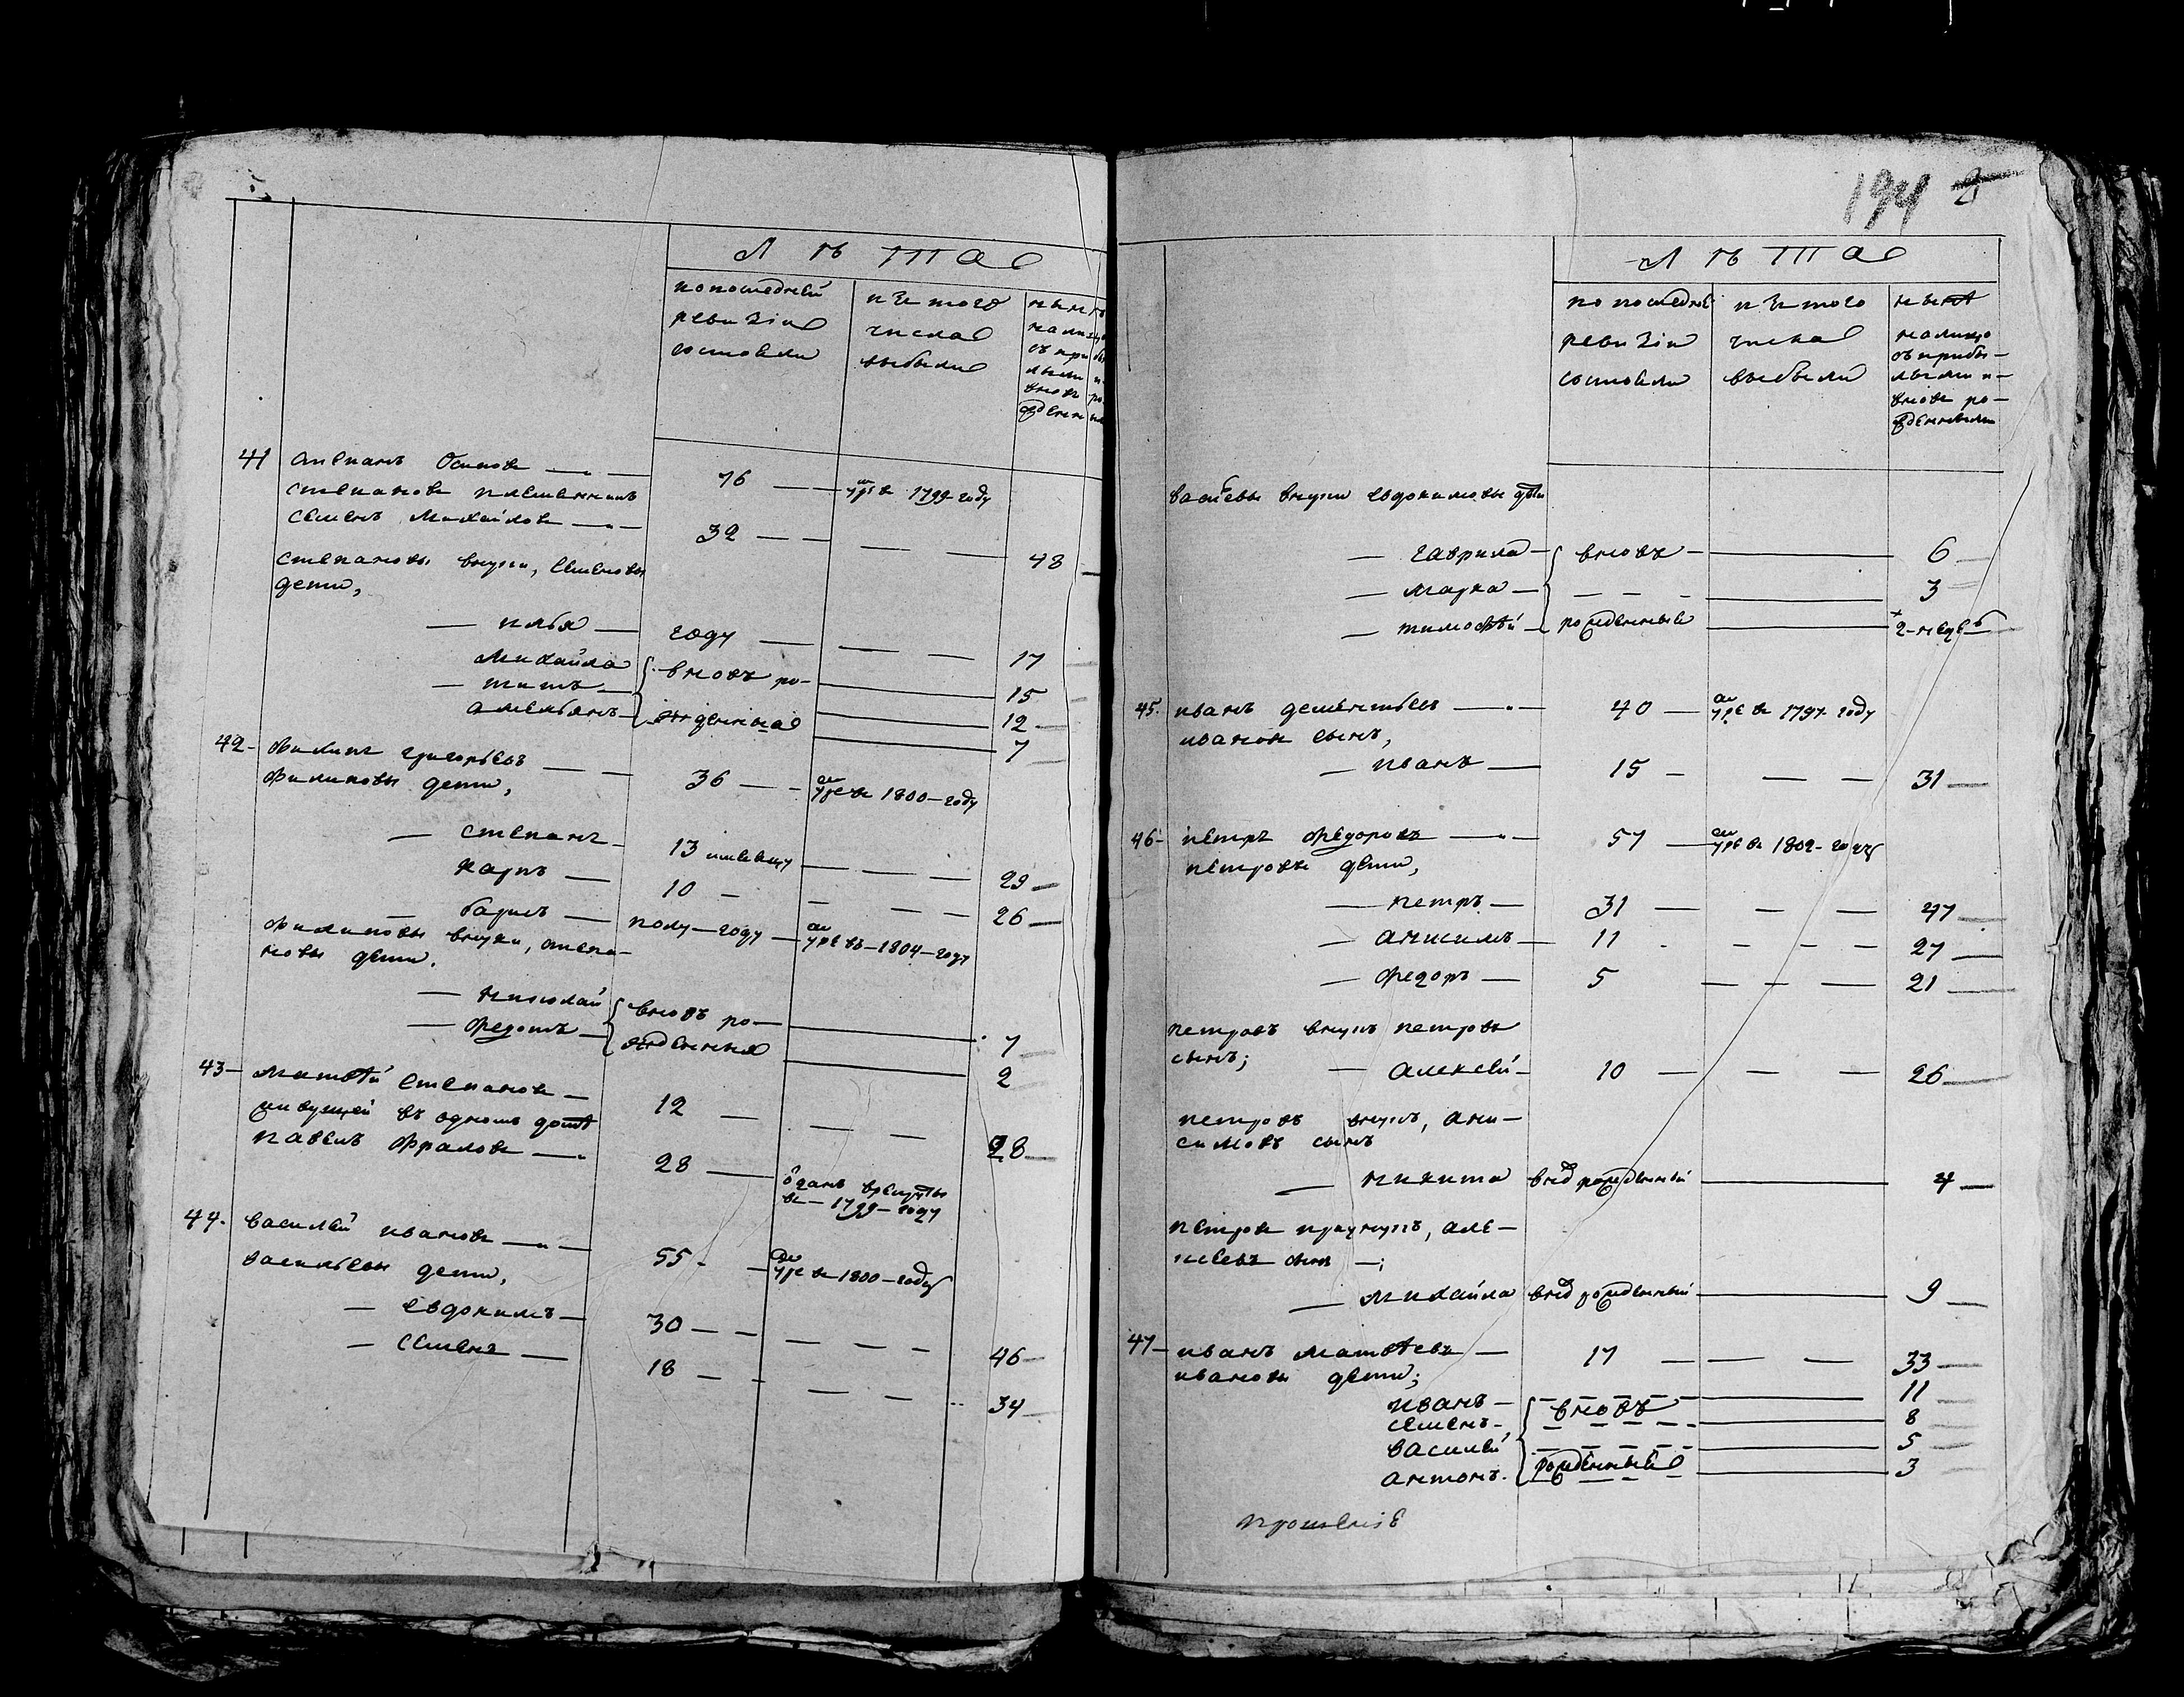 Лѣта
по последней
ревизіи
состояли
изъ того
числа
выбыли
ныне
налицо
41 Степанъ Осиповъ 76 умре въ 1799 году
Степановъ племянникъ
Семенъ Михайловъ 32 48
Степановы внуки, Семеновы
дети,
Илья году 17
Михайла вновь ро- 15
Титъ 12
Амельянъ жденныя 7
42 Филипъ Григорьевъ 36 умре въ 1800 году
Филиповы дети,
Степанъ 13 29
Карпъ 10 26
полугоду умре въ 1804 году
Филиповы внуки, Степа-
новы дети,
Николай вновь ро- 7
Федотъ жденныя 2
43 Матвѣй Степановъ 12 28
живущей въ одномъ домѣ
Павелъ Фраловъ 28 отданъ врекруты
въ 1799 году
44 Василей Ивановъ 55 умре въ 1800 году
Васильевы дети,
Евдокимъ 30 46
Семенъ 18 34
194
Лѣта
по последней
ревизіи
состояли
изъ того
числа
выбыли
нынѣ
налицо
съ прибы-
лыми и
вновь ро-
жденными
Васильевы внуки Евдокимовы дети
Гаврила вновь 6
Марка 3
Тимофѣй рожденные
45 Иванъ Дементьевъ 40 умре въ 1797 году
Ивановъ сынъ,
Иванъ 15 31
46 Петръ Федоровъ 57 умре въ 1802 году
Петровы дети,
Петръ 31 47
Анисимъ 11 27
Федоръ 5 21
Петровъ внукъ Петровъ
сынъ;
Алексей 10 26
Петровъ внукъ, Ани-
симовъ сынъ
Никита внов рожденный 4
Петровъ правнукъ, Але-
ксеевъ сынъ;
Михайла внов рожденный 9
47 Иванъ Матвѣевъ 17 33
Ивановы дети;
Иванъ вновь 11
Семенъ 8
Василей 5
Антонъ рожденные 3